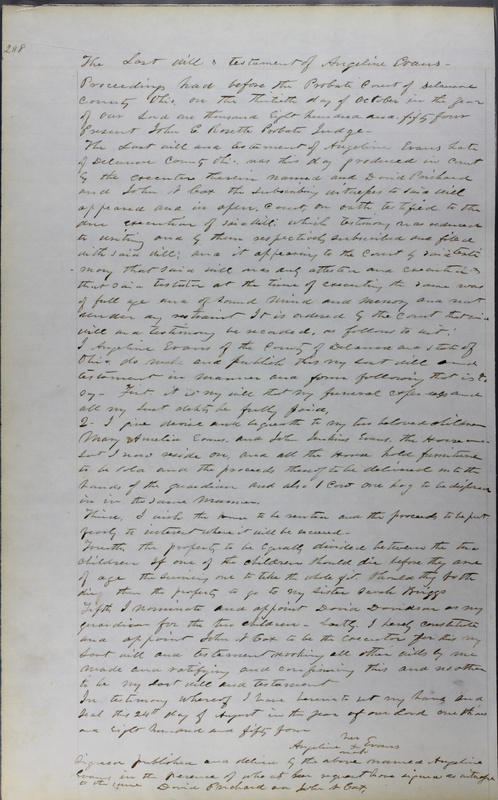 248
The Last will & testament of Angeline Evans -
Proceedings had before the Probate Court of Delaware
County Ohio, on the thirtieth day of October in the year
of our Lord one thousand Eight hundred and fifty four
Present John C Rosette Probate Judge -
The Last will and testament of Angeline Evans late
of Delaware County Oh. was this day produced in Court
by the executor therein named and David Prichard
and John N Cox the Subscribing witnesses to said will
appeared and in open Court, on oath testified to the
due execution of said will: which testimony was reduced
to writing and by them respectively subscribed and filed
with said will; and it appearing to the Court by said testi
mony that said will was duly attested and executed &
that said testator at the time of executing the same was
of full age and of sound mind and memory and not
under any restraint It is ordered by the Court that said
will and testimony be recorded, as follows to wit:
I Angeline Evans of the County of Delaware and State of
Ohio do make and publish this my last will and
testament in manner and form following that is to
say - First it is my will that my funeral expenses and
all my just debts be fully paid,
2 - I give devise and bequeath to my two beloved children
Mary Amelia Evans, and John Jenkins Evans, the House and
lot I now reside on, and all the House hold furniture
to be sold and the proceeds thereof to be delivered into the
hands of the guardian and also 1 Cow one hog to be disposed
in in the same manner.
Third, I wish the House to be rented and the proceeds to be put
yearly to interest where it will be secured -
Fourth the property to be equally divided between the two
children If one of the children should die before they are
of age the surviving one to take the whole yet should they both
die then the property to go to my Sister Sarah Briggs
Fifth I nominate and appoint David Davidson as my
guardian for the two children - Lastly, I hereby constitute
and appoint John N Cox to be the executor for this my
last will and testament revoking all other wills by me
made and ratifying and confirming this and no other
to be my last will and testament
In testimony whereof I have hereunto set my hand and
seal this 24th day of August in the year of our Lord one thous
and Eight hundred and fifty four
her
Angeline + Evans
mark
Signed published and declared by the above named Angeline
Evans in the presence of who at her request have signed as witnesses
to the same David Prichard and John N Cox,